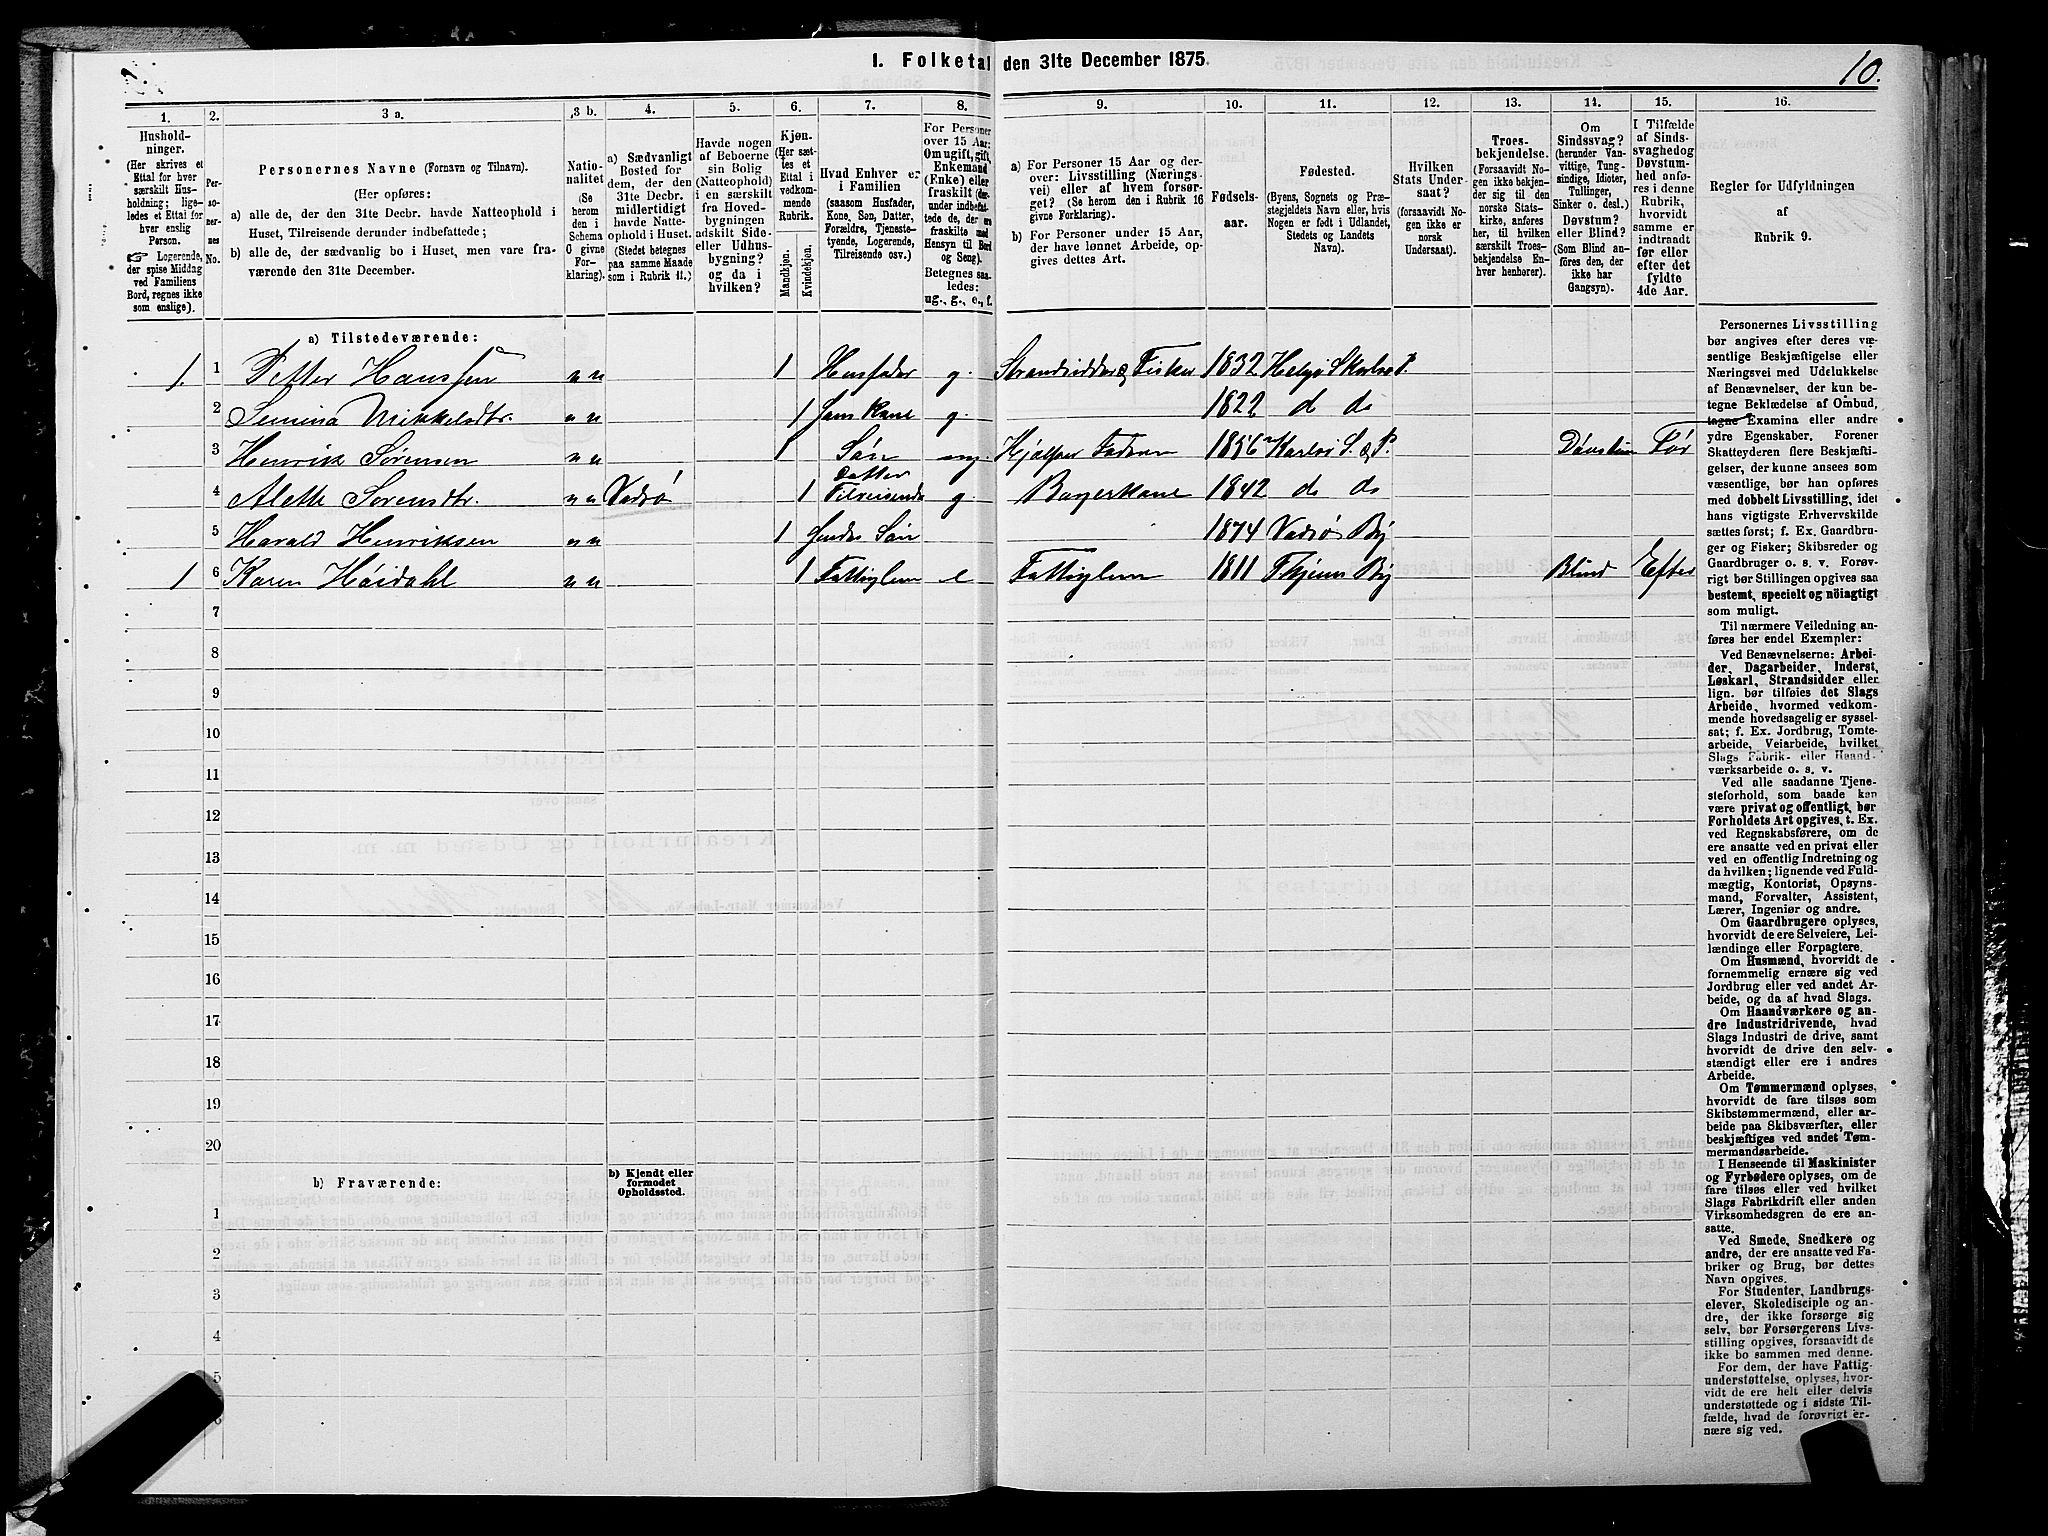 1. Folketal den 31te December 1875.
10.
1. 2. 3 a. 3 b. 4. 5. 6. 7. 8. 9. 10. 11. 12. 13. 14. 15. 16.
Hushold-
ninger.
(Her skrives et
Ettal for hver
særskilt Hus-
holdning; lige-
ledes et Ettal for
hver enslig
Person.
☞ Logerende,
der spise Middag
ved Familiens
Bord, regnes ikke
som enslige).
Per-
so-
ner-
nes
No.
Personernes Navne (Fornavn og Tilnavn).
(Her opføres:
a) alle de, der den 31te Decbr. havde Natteophold i
Huset, Tilreisende derunder indbefattede;
b) alle de, der sædvanlig bo i Huset, men vare fra-
værende den 31te December.
Natio-
nalitet
(Se
herom
den i
Schema
O givne
For-
klaring).
a) Sædvanligt
Bosted for
dem, der den
31te Decbr.
midlertidigt
havde Natte-
ophold i Huset.
(Stedet betegnes
paa samme Maade
som i Rubrik 11.)
Havde nogen
af Beboerne
sin Bolig
(Natteophold)
i en særskilt
fra Hoved-
bygningen
adskilt Side-
eller Udhus-
bygning?
og da i
hvilken?
Kjøn.
(Her sæt-
tes et
Ettal i
vedkom-
mende
Rubrik.
Mandkjøn.
Kvindekjøn.
Hvad Enhver er
i Familien
(saasom Husfader,
Kone, Søn, Datter,
Forældre, Tjeneste-
tyende, Logerende,
Tilreisende osv.)
For Personer
over 15 Aar:
Om ugift, gift,
Enkemand
(Enke) eller
fraskilt (der-
under indbefat-
tede de, der ere
fraskilte med
Hensyn til Bord
og Seng).
Betegnes saa-
ledes:
ug., g., e., f.
a) For Personer 15 Aar og der-
over: Livsstilling (Nærings-
vei) eller af hvem forsør-
get? (Se herom den i Rubrik 16
givne Forklaring).
b) For Personer under 15 Aar,
der have lønnet Arbeide, op-
gives dettes Art.
Fødsels-
aar.
Fødested.
(Byens, Sognets og Præ-
stegjeldets Navn eller, hvis
Nogen er født i Udlandet,
Stedets og Landets
Navn).
Hvilken
Stats Under-
saat?
(forsaavidt No-
gen ikke er
norsk
Undersaat).
Troes-
bekjendelse.
(Forsaavidt No-
gen ikke bekjen-
der sig til den
norske Stats-
kirke, anføres
her, til hvilken
særskilt Troes-
bekjendelse En-
hver henhører).
Om
Sindssvag?
(herunder Van-
vittige, Tung-
sindige, Idioter,
Tullinger,
Sinker o. desl.)
Døvstum?
eller Blind?
(Som Blind an-
føres den, der
ikke har
Gangsyn).
I Tilfælde
af Sinds-
svaghed og
Døvstum-
hed anfø-
res i denne
Rubrik,
hvorvidt
samme er
indtraadt
før eller
efter det
fyldte
4de Aar.
Regler for Udfyldningen
af
Rubrik 9.
a) Tilstedeværende:
1. 1 Petter Hanssen n n 1 Husfader g. Strandsidder & Fisker 1832 Helgø Skarsø P.
2 Semina Mikkelsdtr. n n 1 hans Kone g. 1822 d do
3 Henrik Sørensen n n 1 Søn ug. Hjælper Faderen 1856 Karlsø S. & P. Døvstum Før
4 Alette Sørensdtr. n n Vadsø 1 Datter Tilreisende g Bagerkone 1842 do do
5 Harald Henriksen n n 1 hendes Søn 1874 Vadsø By
1 6 Karen Høidahl n n 1 Fattiglem e Fattiglem 1811 Thjem By Blind Efter
7
8
9
10
11
12
13
14
15
16
17
18
19
20
b) Fraværende:
b) Kjendt eller
formodet
Opholdssted.
1
2
3
4
5
6
Personernes Livsstilling
bør angives efter deres væ-
sentlige Beskjæftigelse eller
Næringsvei med Udelukkelse
af Benævnelser, der kun be-
tegne Beklædelse af Ombud,
tagne Examina eller andre
ydre Egenskaber. Forener
Skatteyderen flere Beskjæfti-
gelser, der kunne ansees som
væsentlige, bør han opføres
med dobbelt Livsstilling, idet
hans vigtigste Erhvervskilde
sættes først; f. Ex. Gaardbru-
ger og Fisker; Skibsreder og
Gaardbruger o. s. v. Forøv-
rigt bør Stillingen opgives saa
bestemt, specielt og nöiagtigt
som muligt.
Til nærmere Veiledning an-
føres her endel Exempler:
Ved Benævnelserne: Arbei-
der, Dagarbeider, Inderst,
Løskarl, Strandsidder eller
lign. bør tilføies det Slags
Arbeide, hvormed vedkom-
mende hovedsagelig er syssel-
sat; f. Ex. Jordbrug, Tomte-
arbeide, Veiarbeide, hvilket
Slags Fabrik- eller Haand-
værksarbeide o. s. v.
Ved alle saadanne Tjene-
steforhold, som baade kan
være privat og offentligt, bør
Forholdets Art opgives, t. Ex.
ved Regnskabsførere, om de
ere ansatte ved en privat eller
ved en offentlig Indretning og
da hvilken; lignende ved Fuld-
mægtig, Kontorist, Opsyns-
mand, Forvalter, Assistent,
Lærer, Ingeniør og andre.
Om Gaardbrugere oplyses,
hvorvidt de ere Selveiere, Lei-
lændinge eller Forpagtere.
Om Husmænd, hvorvidt de
fornemmelig ernære sig ved
Jordbrug eller ved andet Ar-
beide, og da af hvad Slags.
Om Haandværkere og an-
dre Industridrivende, hvad
Slags Industri de drive, samt
hvorvidt de drive den selv-
stændigt eller ere i andres
Arbeide.
Om Tømmermænd oplyses,
hvorvidt de fare tilsøs som
Skibstømmermænd, eller ar-
beide paa Skibsværfter, eller
beskjæftiges ved andet Tøm-
mermandsarbeide.
I Henseende til Maskinister
og Fyrbødere oplyses, om de
fare tilsøs eller ved hvilket
Slags Fabrikdrift eller anden
Virksomhedsgren de ere an-
satte.
Ved Smede, Snedkere og
andre, der ere ansatte ved Fa-
briker og Brug, bør dettes
Navn opgives.
For Studenter, Landbrugs-
elever, Skoledisciple og an-
dre, der ikke forsørge sig
selv, bør Forsørgerens Livs-
stilling opgives, forsaavidt de
ikke bo sammen med denne.
For dem, der have Fattig-
understøttelse, oplyses, hvor-
vidt de ere helt eller delvis
understøttede og i sidste Til-
fælde, hvad de forøvrigt er-
nære sig ved.